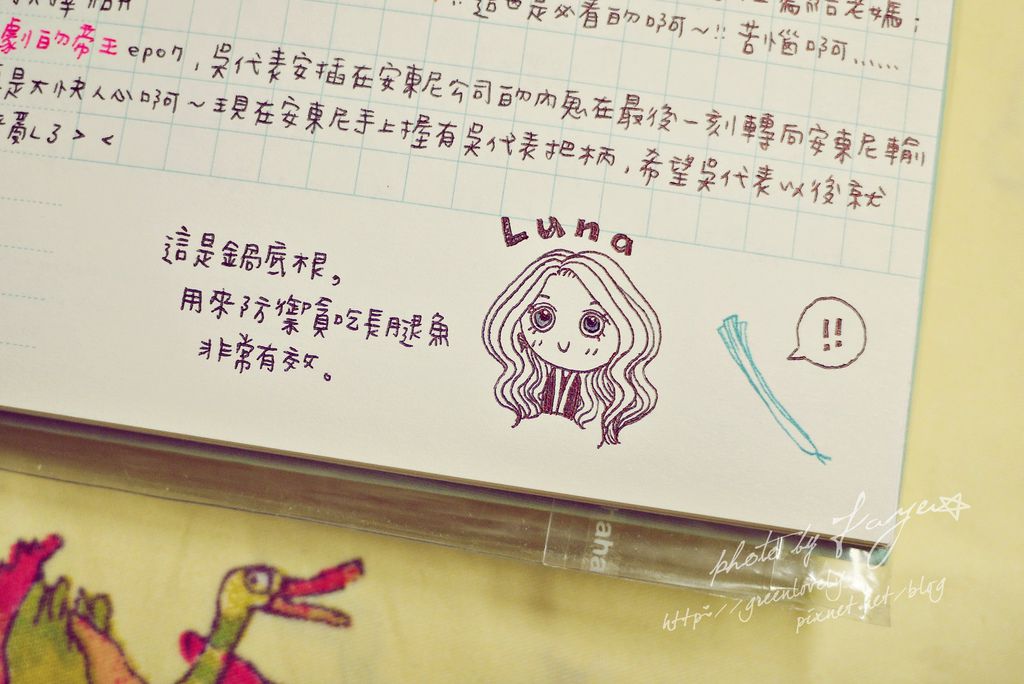 這也是必看的啊~!! 苦惱啊......
劇的帝王 epo7,吳代表安插在安東尼公司的內鬼在最後一刻轉向安東尼輸
是大快人心啊~現在安東尼手上握有吳代表把柄,希望吳代表以後就
Luna
這是鍋底根,
用來防禦貪吃長腿魚
非常有效。
!!
aha
photo by Kaye
http://greenlovely
pixnet.net/blog